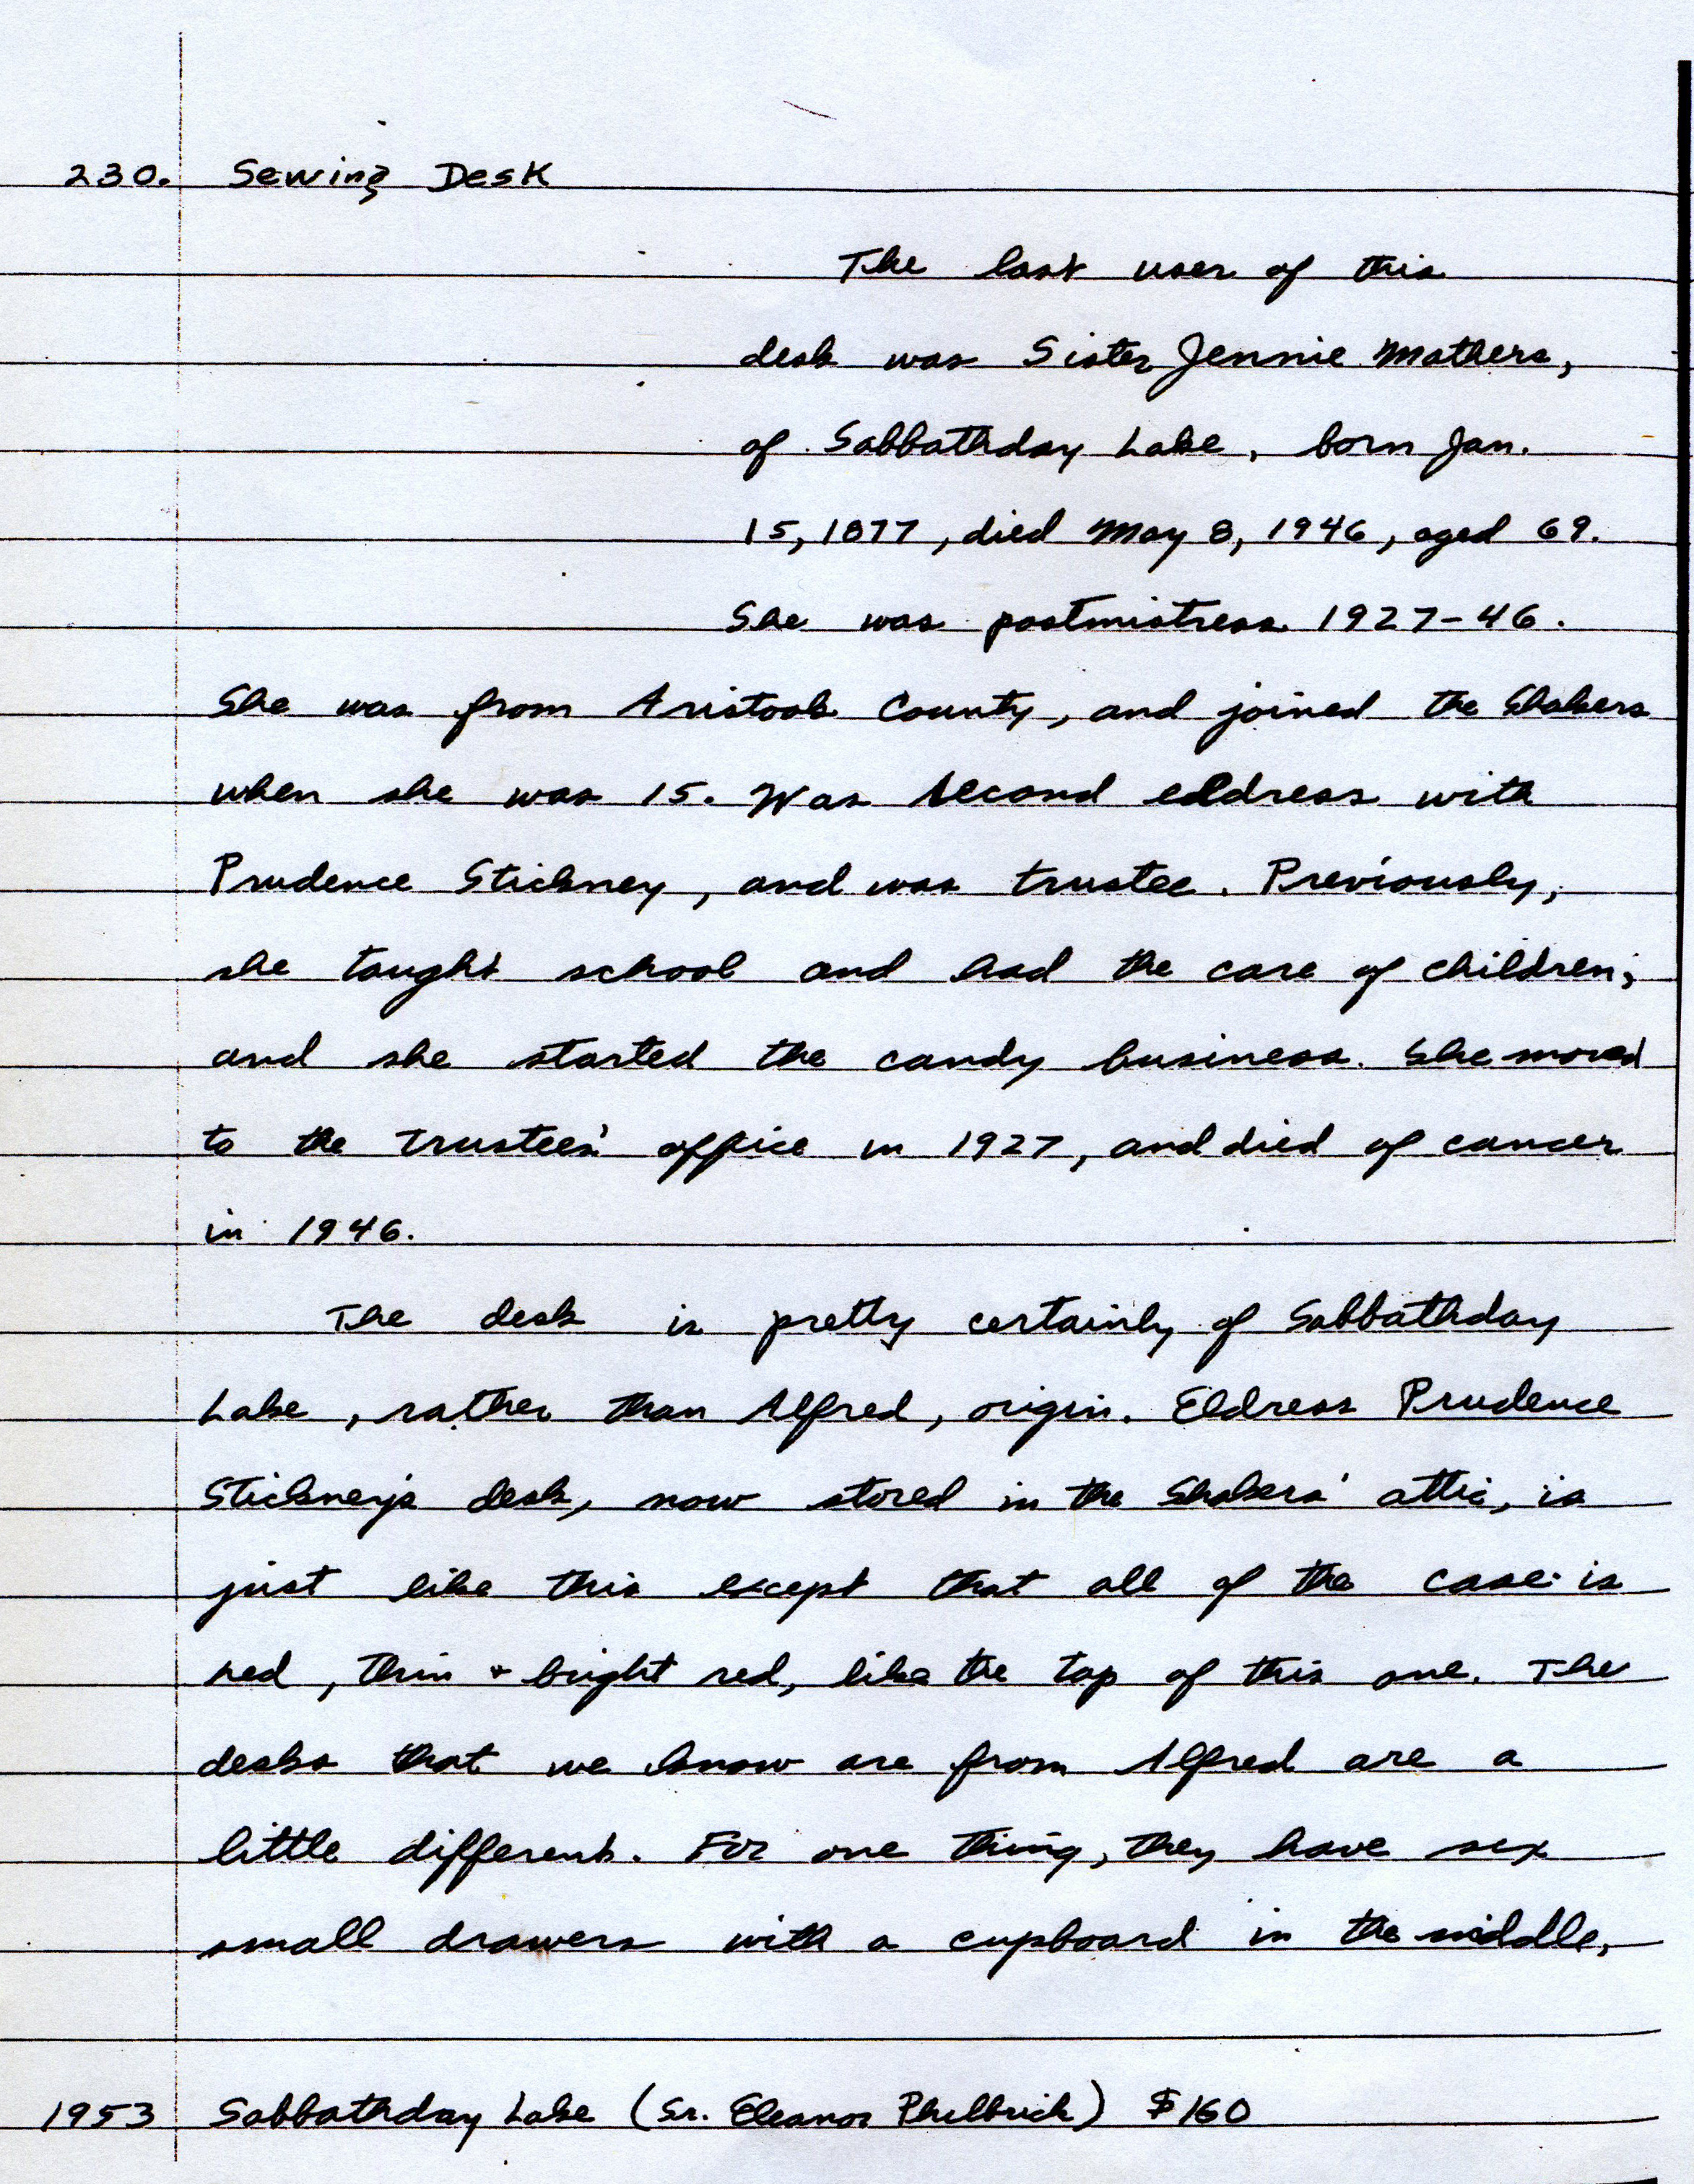 230. Sewing Desk
The last user of this
desk was Sister Jennie Mathers,
of Sabbathday Lake, born Jan.
15, 1877, died May 8, 1946, aged 69.
She was postmistress 1927-46.
She was from Aristook County, and joined the Shakers
when she was 15. Was second eldress with
Prudence Stickney, and was trustee. Previously,
she taught school and had the care of children;
and she started the candy business. She moved
to the trustees' office in 1927, and died of cancer
in 1946.
The desk is pretty certainly of Sabbathday
Lake, rather than Alfred, origin. Eldress Prudence
Stickney's desk, now stored in the Shakers' attic, is
just like this except that all of the case is
red, thin + bright red, like the top of this one. The
desks that we know are from Alfred are a
little different. For one thing, they have six
small drawers with a cupboard in the middle,
1953 Sabbathday Lake (Sr. Eleanor Philbrick) $160